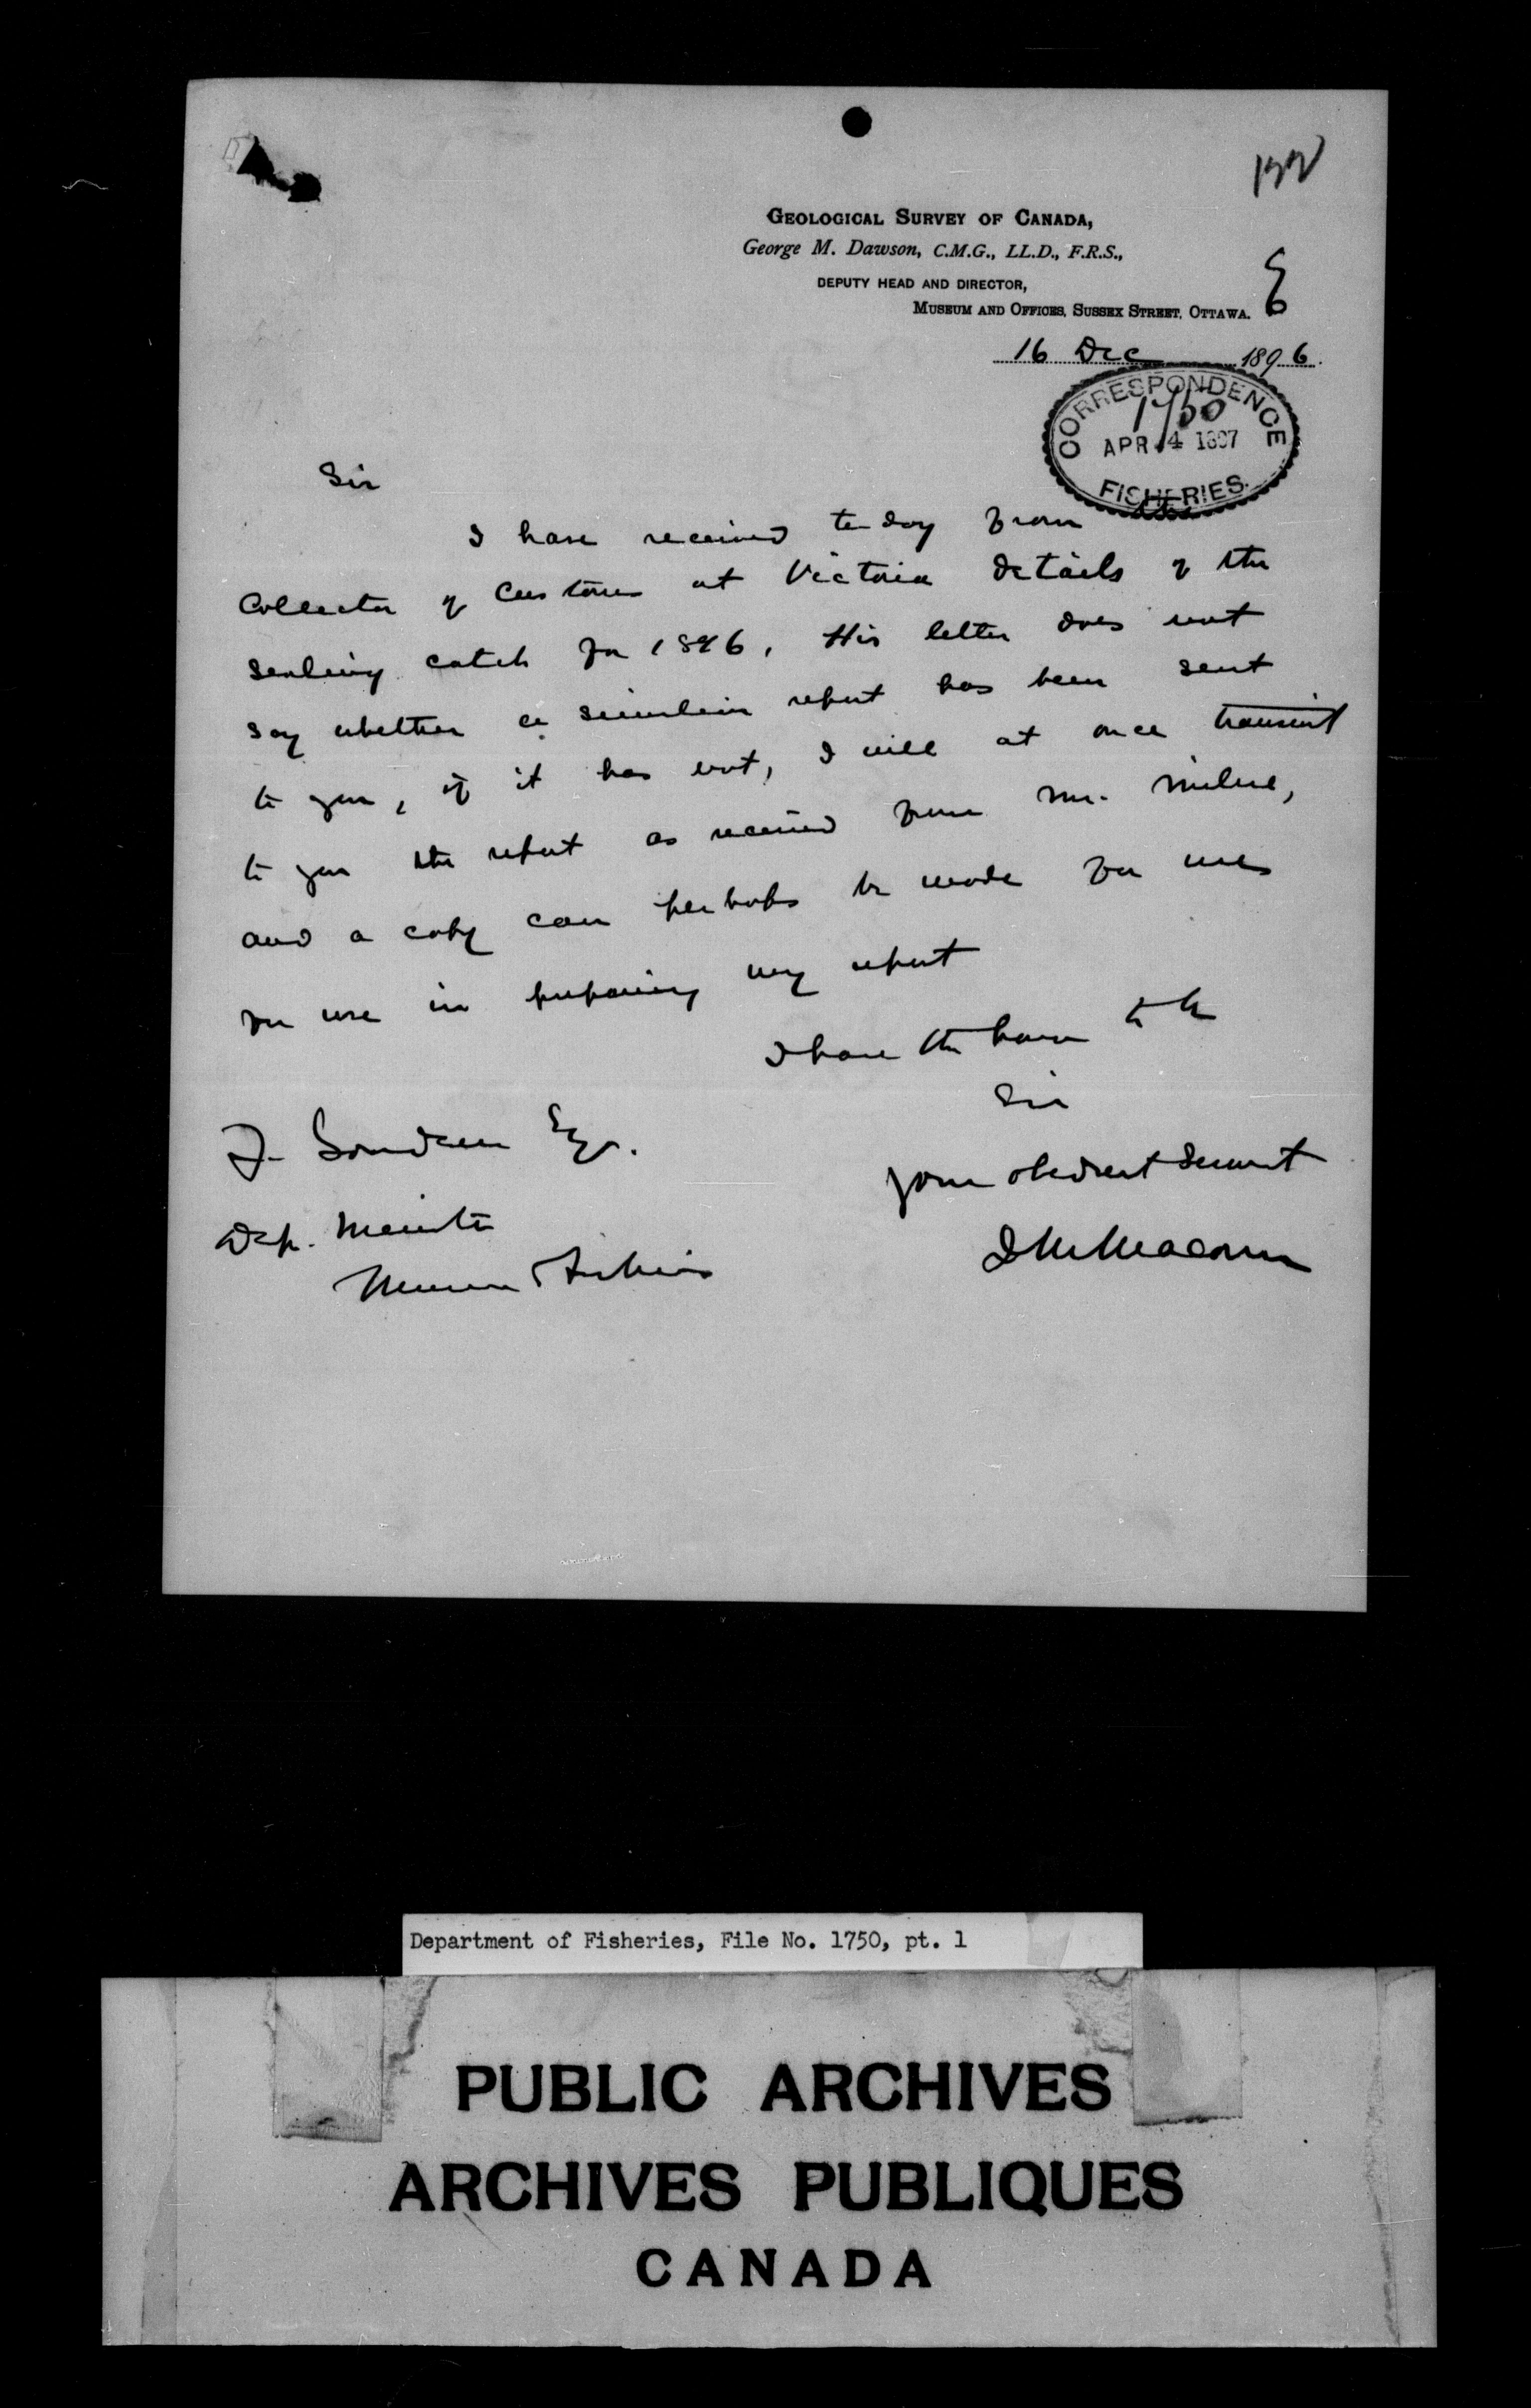 GEOLOGICAL SURVEY OF CANADA,
George M. Dawson, C.M.G., LL.D., F.R.S.,
DEPUTY HEAD AND DIRECTOR,
MUSEUM AND OFFICES, SUSSEX STREET, OTTAWA.
16 Dec 1896.
CORRESPONDENCE
1750
APR 4 1897
FISHERIES.
Sir
I have received to-day from the
Collector of Customs at Victoria details of the
sealing catch for 1896, His letter does not
say whether a similar report has been sent
to you, if it has not, I will at once transmit
to you the report as received from Mr. Milne,
and a copy can perhaps be made for me
for use in preparing my report
I have the honor to be
Sir
your obedient servant
J M Macoun
Gourdeau Esq.
Dep. Minister
Marine & Fisheries
Department of Fisheries, File No. 1750, pt. 1
PUBLIC ARCHIVES
ARCHIVES PUBLIQUES
CANADA